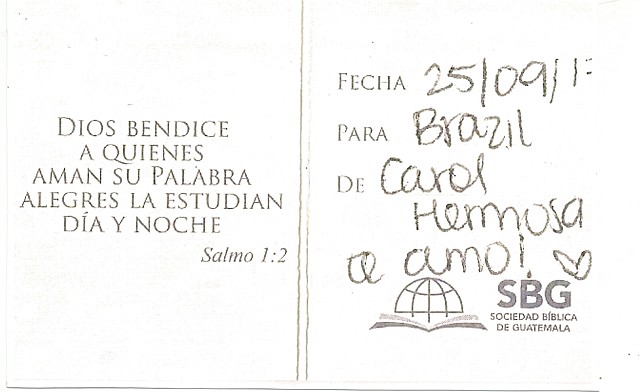 DIOS BENDICE
A QUIENES
AMAN SU PALABRA
ALEGRES LA ESTUDIAN
DÍA Y NOCHE
Salmo 1:2
FECHA 25/09/1
PARA Brazil
DE Carol
Hermosa
a amo!
SBG
SOCIEDAD BÍBLICA
DE GUATEMALA